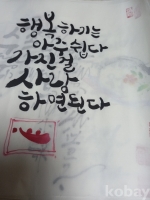 행복하기는
아주 쉽다
가진걸
사랑
하면 된다
kobay